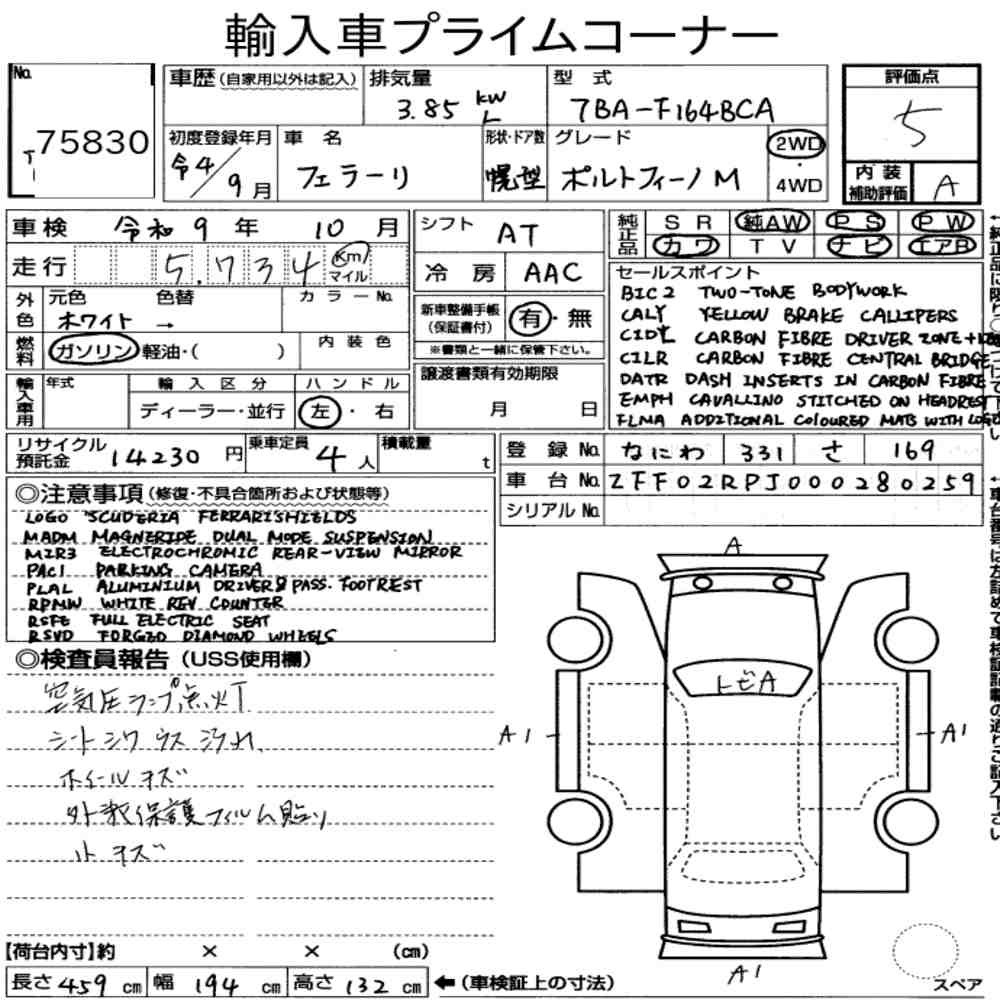 輸入車プライムコーナー
No. 75830
車歴 (自家用以外は記入)
排気量 3.85 kw L
型式 7BA-F164BCA
評価点 5
初度登録年月 令4/9月
車名 フェラーリ
形状・ドア数 幌型
グレード ポルトフィーノM
2WD・4WD
内装補助評価 A
車検 令和 9 年 10 月
走行 5,734 Km マイル
シフト AT
冷房 AAC
純正品 SR 純AW PS PW
カワ TV ナビ エアB
外色 元色 ホワイト → 色替 カラーNo.
燃料 ガソリン・軽油・( ) 内装色
新車整備手帳 (保証書付) 有・無
※書類と一緒に保管下さい。
輸入車用 年式 輸入区分 ディーラー・並行 ハンドル 左・右
譲渡書類有効期限 月 日
セールスポイント
BIC2 TWO-TONE BODYWORK
CALY YELLOW BRAKE CALLIPERS
CIDY CARBON FIBRE DRIVER ZONE+
CILR CARBON FIBRE CENTRAL BRIDGE
DATR DASH INSERTS IN CARBON FIBRE
EMPH CAVALLINO STITCHED ON HEADREST
FLMA ADDITIONAL COLOURED MATS WITH LOGO
リサイクル預託金 14230 円
乗車定員 4 人
積載量 t
登録No. なにわ 331 さ 169
車台No. ZFF02RPJ000280259
シリアルNo.
◎注意事項 (修復・不具合箇所および状態等)
LOGO SCUDERIA FERRARI SHIELDS
MADM MAGNERIDE DUAL MODE SUSPENSION
MIR3 ELECTROCHROMIC REAR-VIEW MIRROR
PAC1 PARKING CAMERA
PLAL ALUMINIUM DRIVER & PASS. FOOTREST
RPMW WHITE REV COUNTER
RSFE FULL ELECTRIC SEAT
RSVD FORGED DIAMOND WHEELS
◎検査員報告 (USS使用欄)
空気圧ランプ点灯
シートシワ ウス汚れ
ホイールキズ
外装保護フィルム貼り
小キズ
A
トビA
A1
A1
A1
【荷台内寸】約 × × (cm)
長さ 459 cm 幅 194 cm 高さ 132 cm ←(車検証上の寸法)
スペア